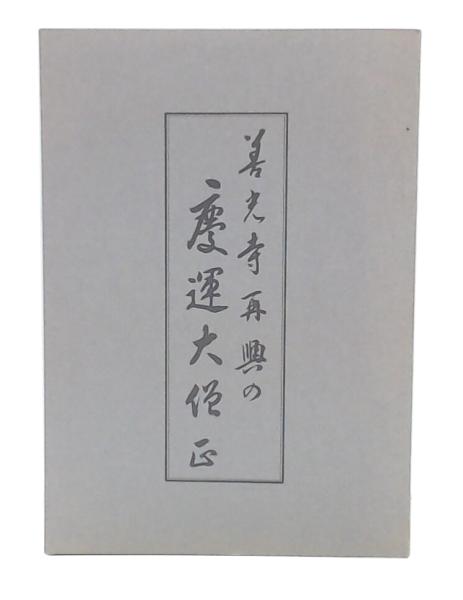 善光寺再興の
慶運大僧正